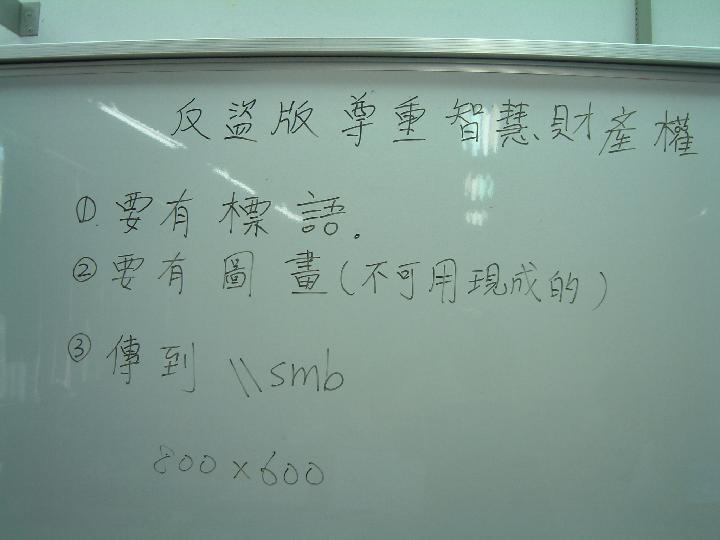 反盜版尊重智慧財產權
①要有標語。
②要有圖畫(不可用現成的)
③傳到 \\smb
800x600